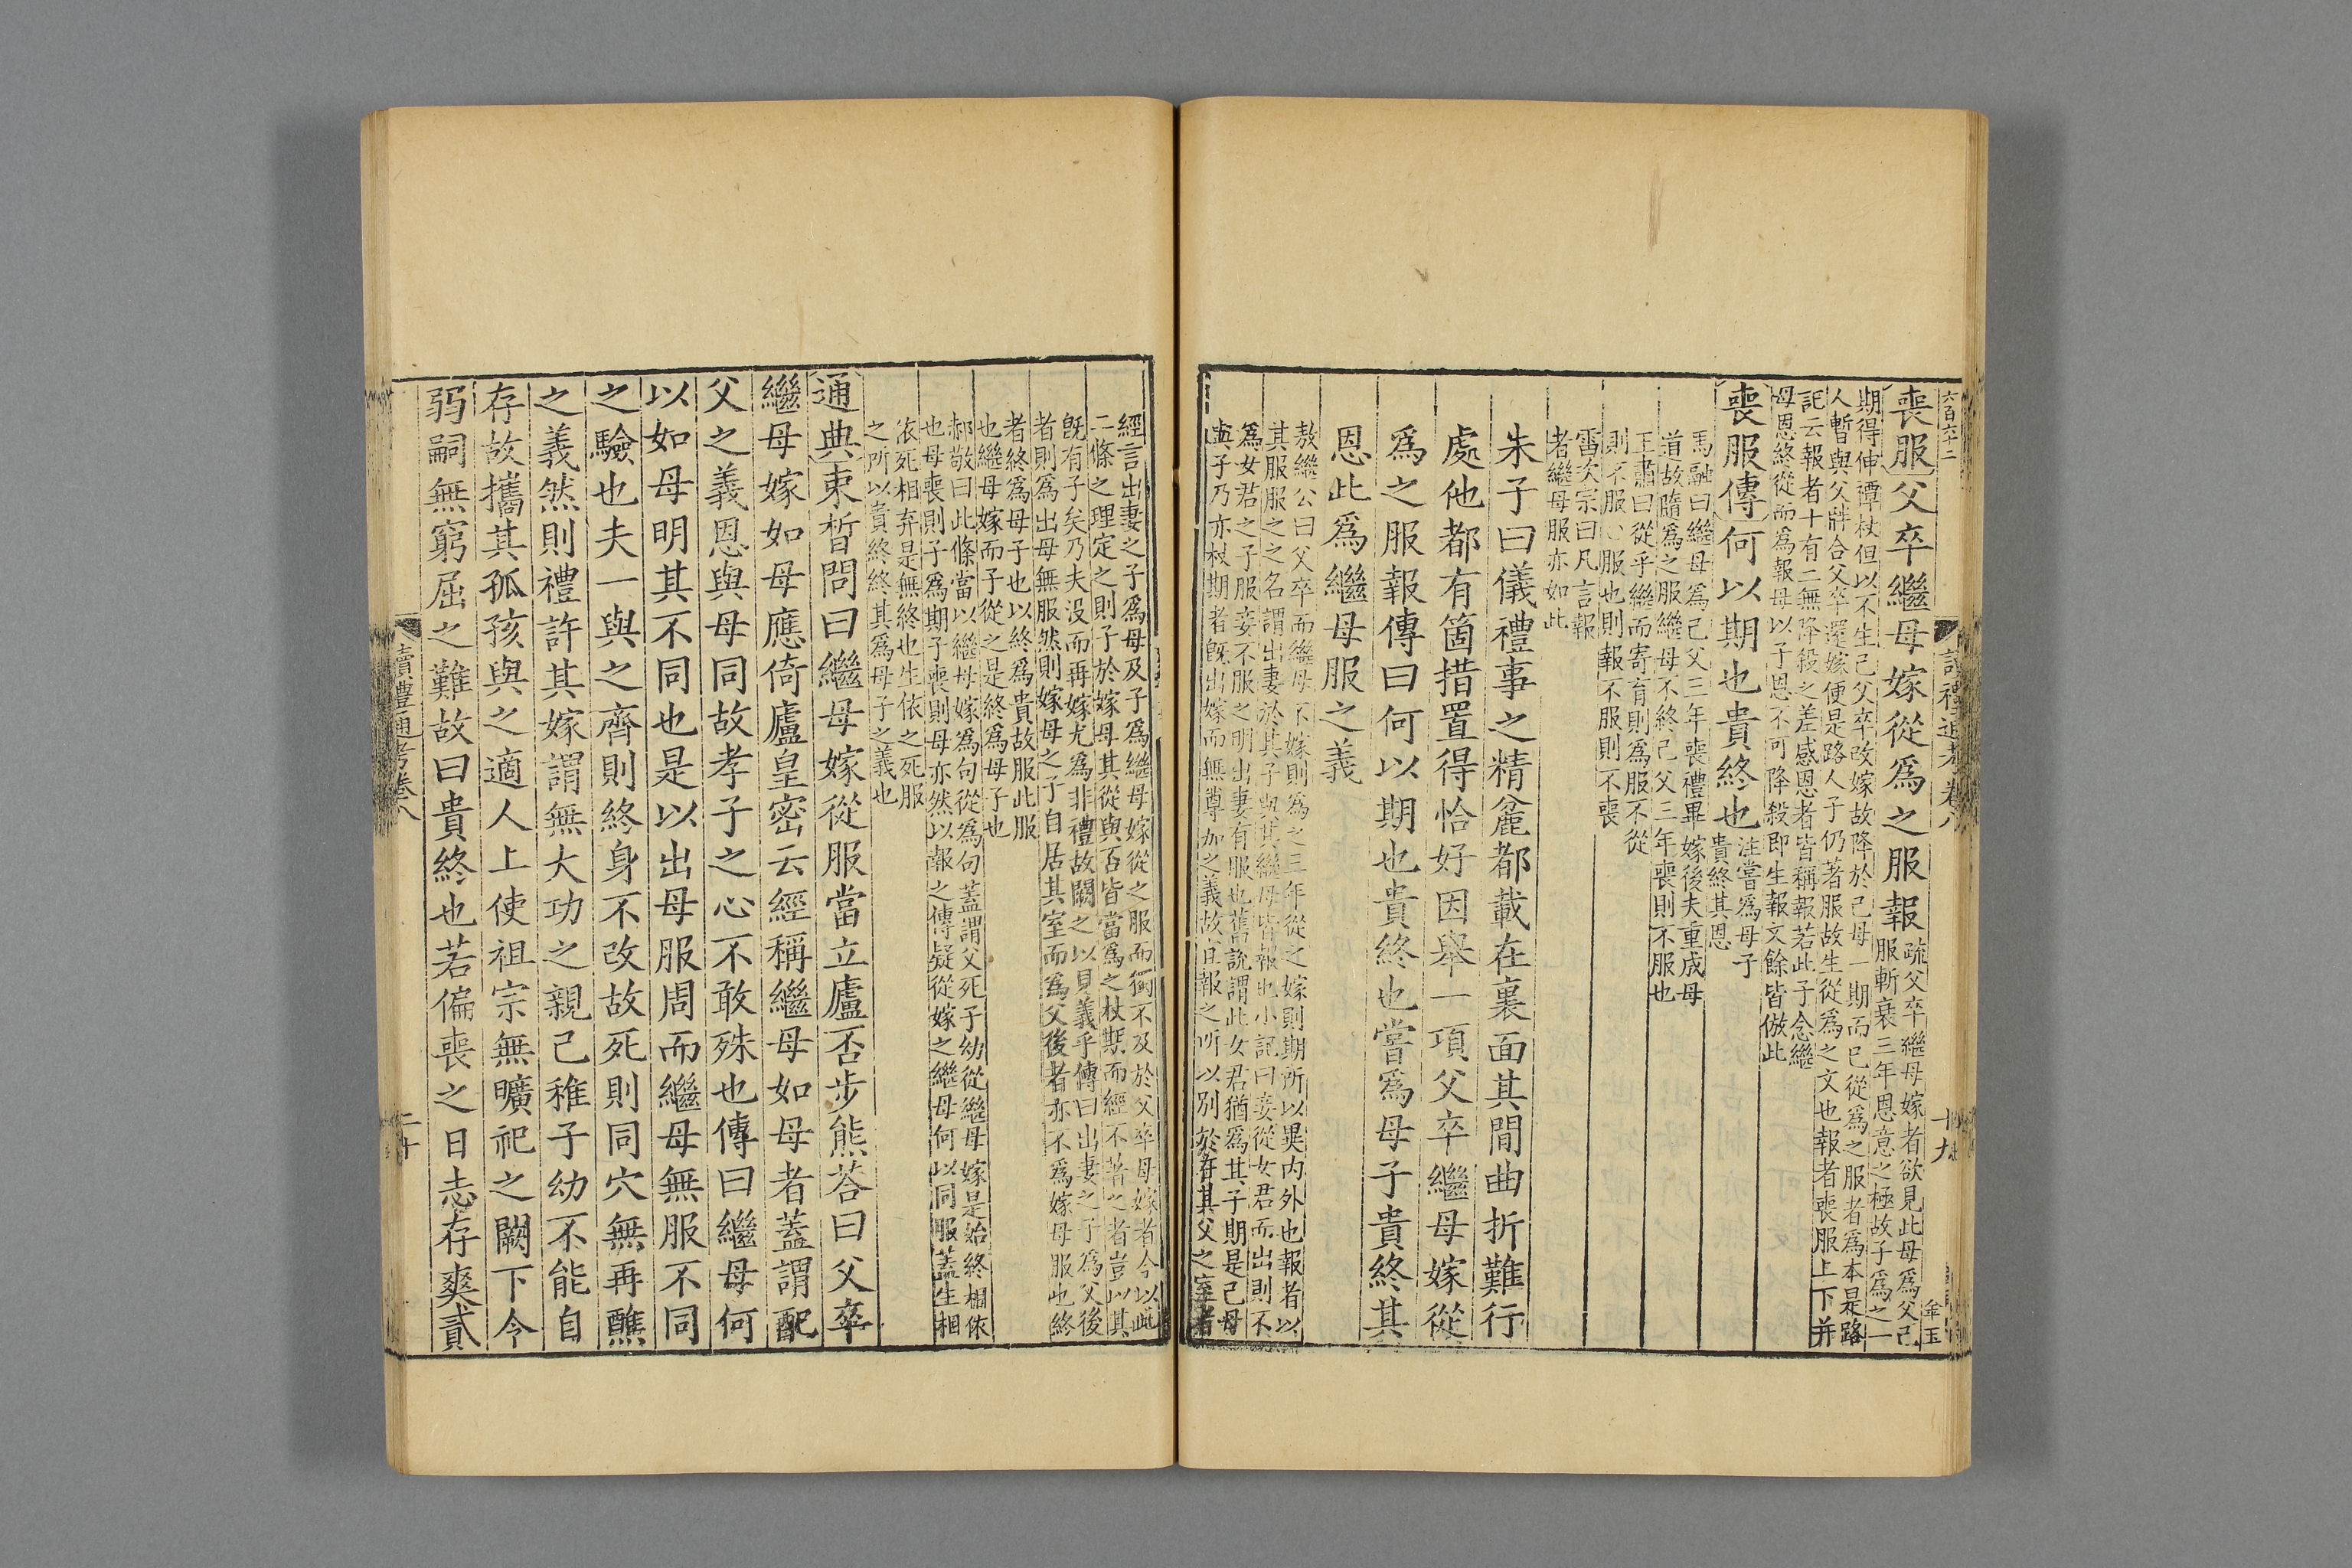 六百六十二
讀禮通考卷八
十九
喪服父卒繼母嫁從爲之服報
疏父卒繼母嫁者欲見此母爲父已
服斬衰三年恩意之極故子爲之一
期得伸禫杖但以不生己父卒改嫁故降於己母一期而已從爲之服者爲本是路
人暫與父牉合父卒還嫁便是路人子仍著服故生從爲之文也報者喪服上下并
記云報者十有二無降殺之差感恩者皆稱報若此子念繼
母恩終從而爲報母以子恩不可降殺即生報文餘皆倣此
喪服傳何以期也貴終也
注嘗爲母子
貴終其恩
馬融曰繼母爲己父三年喪禮畢嫁後夫重成母
道故隨爲之服繼母不終己父三年喪則不服也
王肅曰從乎繼而寄育則爲服不從
則不服服也則報不服則不喪
雷次宗曰凡言報
者繼母服亦如此
朱子曰儀禮事之精麄都載在裏面其間曲折難行
處他都有箇措置得恰好因舉一項父卒繼母嫁從
爲之服報傳曰何以期也貴終也嘗爲母子貴終其
恩此爲繼母服之義
敖繼公曰父卒而繼母不嫁則爲之三年從之嫁則期所以異內外也報者以
其服服之之名謂出妻於其子與其繼母皆報也小記曰妾從女君而出則不
爲女君之子服妾不服之明出妻有服也舊說謂此女君猶爲其子期是己母
與子乃亦杖期者旣出嫁而無尊加之義故宜報之所以別於在其父之室者
經言出妻之子爲母及子爲繼母嫁從之服而獨不及於父卒母嫁者今以此
二條之理定之則子於嫁母其從與否皆當爲之杖期而經不著之者豈以其
旣有子矣乃夫沒而再嫁尤爲非禮故闕之以見義乎傳曰出妻之子爲父後
者則爲出母無服然則嫁母之子自居其室而爲父後者亦不爲嫁母服也終
者終爲母子也以終爲貴故服此服
也繼母嫁而子從之是終爲母子也
郝敬曰此條當以繼母嫁爲句從爲句蓋謂父死子幼從繼母嫁是始終相依
也母喪則子爲期子喪則母亦然以報之傳疑從嫁之繼母何以同服蓋生相
依死相弃是無終也生依之死服
之所以貴終終其爲母子之義也
通典束晳問曰繼母嫁從服當立廬否步熊荅曰父卒
繼母嫁如母應倚廬皇密云經稱繼母如母者蓋謂配
父之義恩與母同故孝子之心不敢殊也傳曰繼母何
以如母明其不同也是以出母服周而繼母無服不同
之驗也夫一與之齊則終身不改故死則同穴無再醮
之義然則禮許其嫁謂無大功之親己稚子幼不能自
存故攜其孤孩與之適人上使祖宗無曠祀之闕下令
弱嗣無窮屈之難故曰貴終也若偏喪之日志存爽貳
讀禮通考卷八
二十